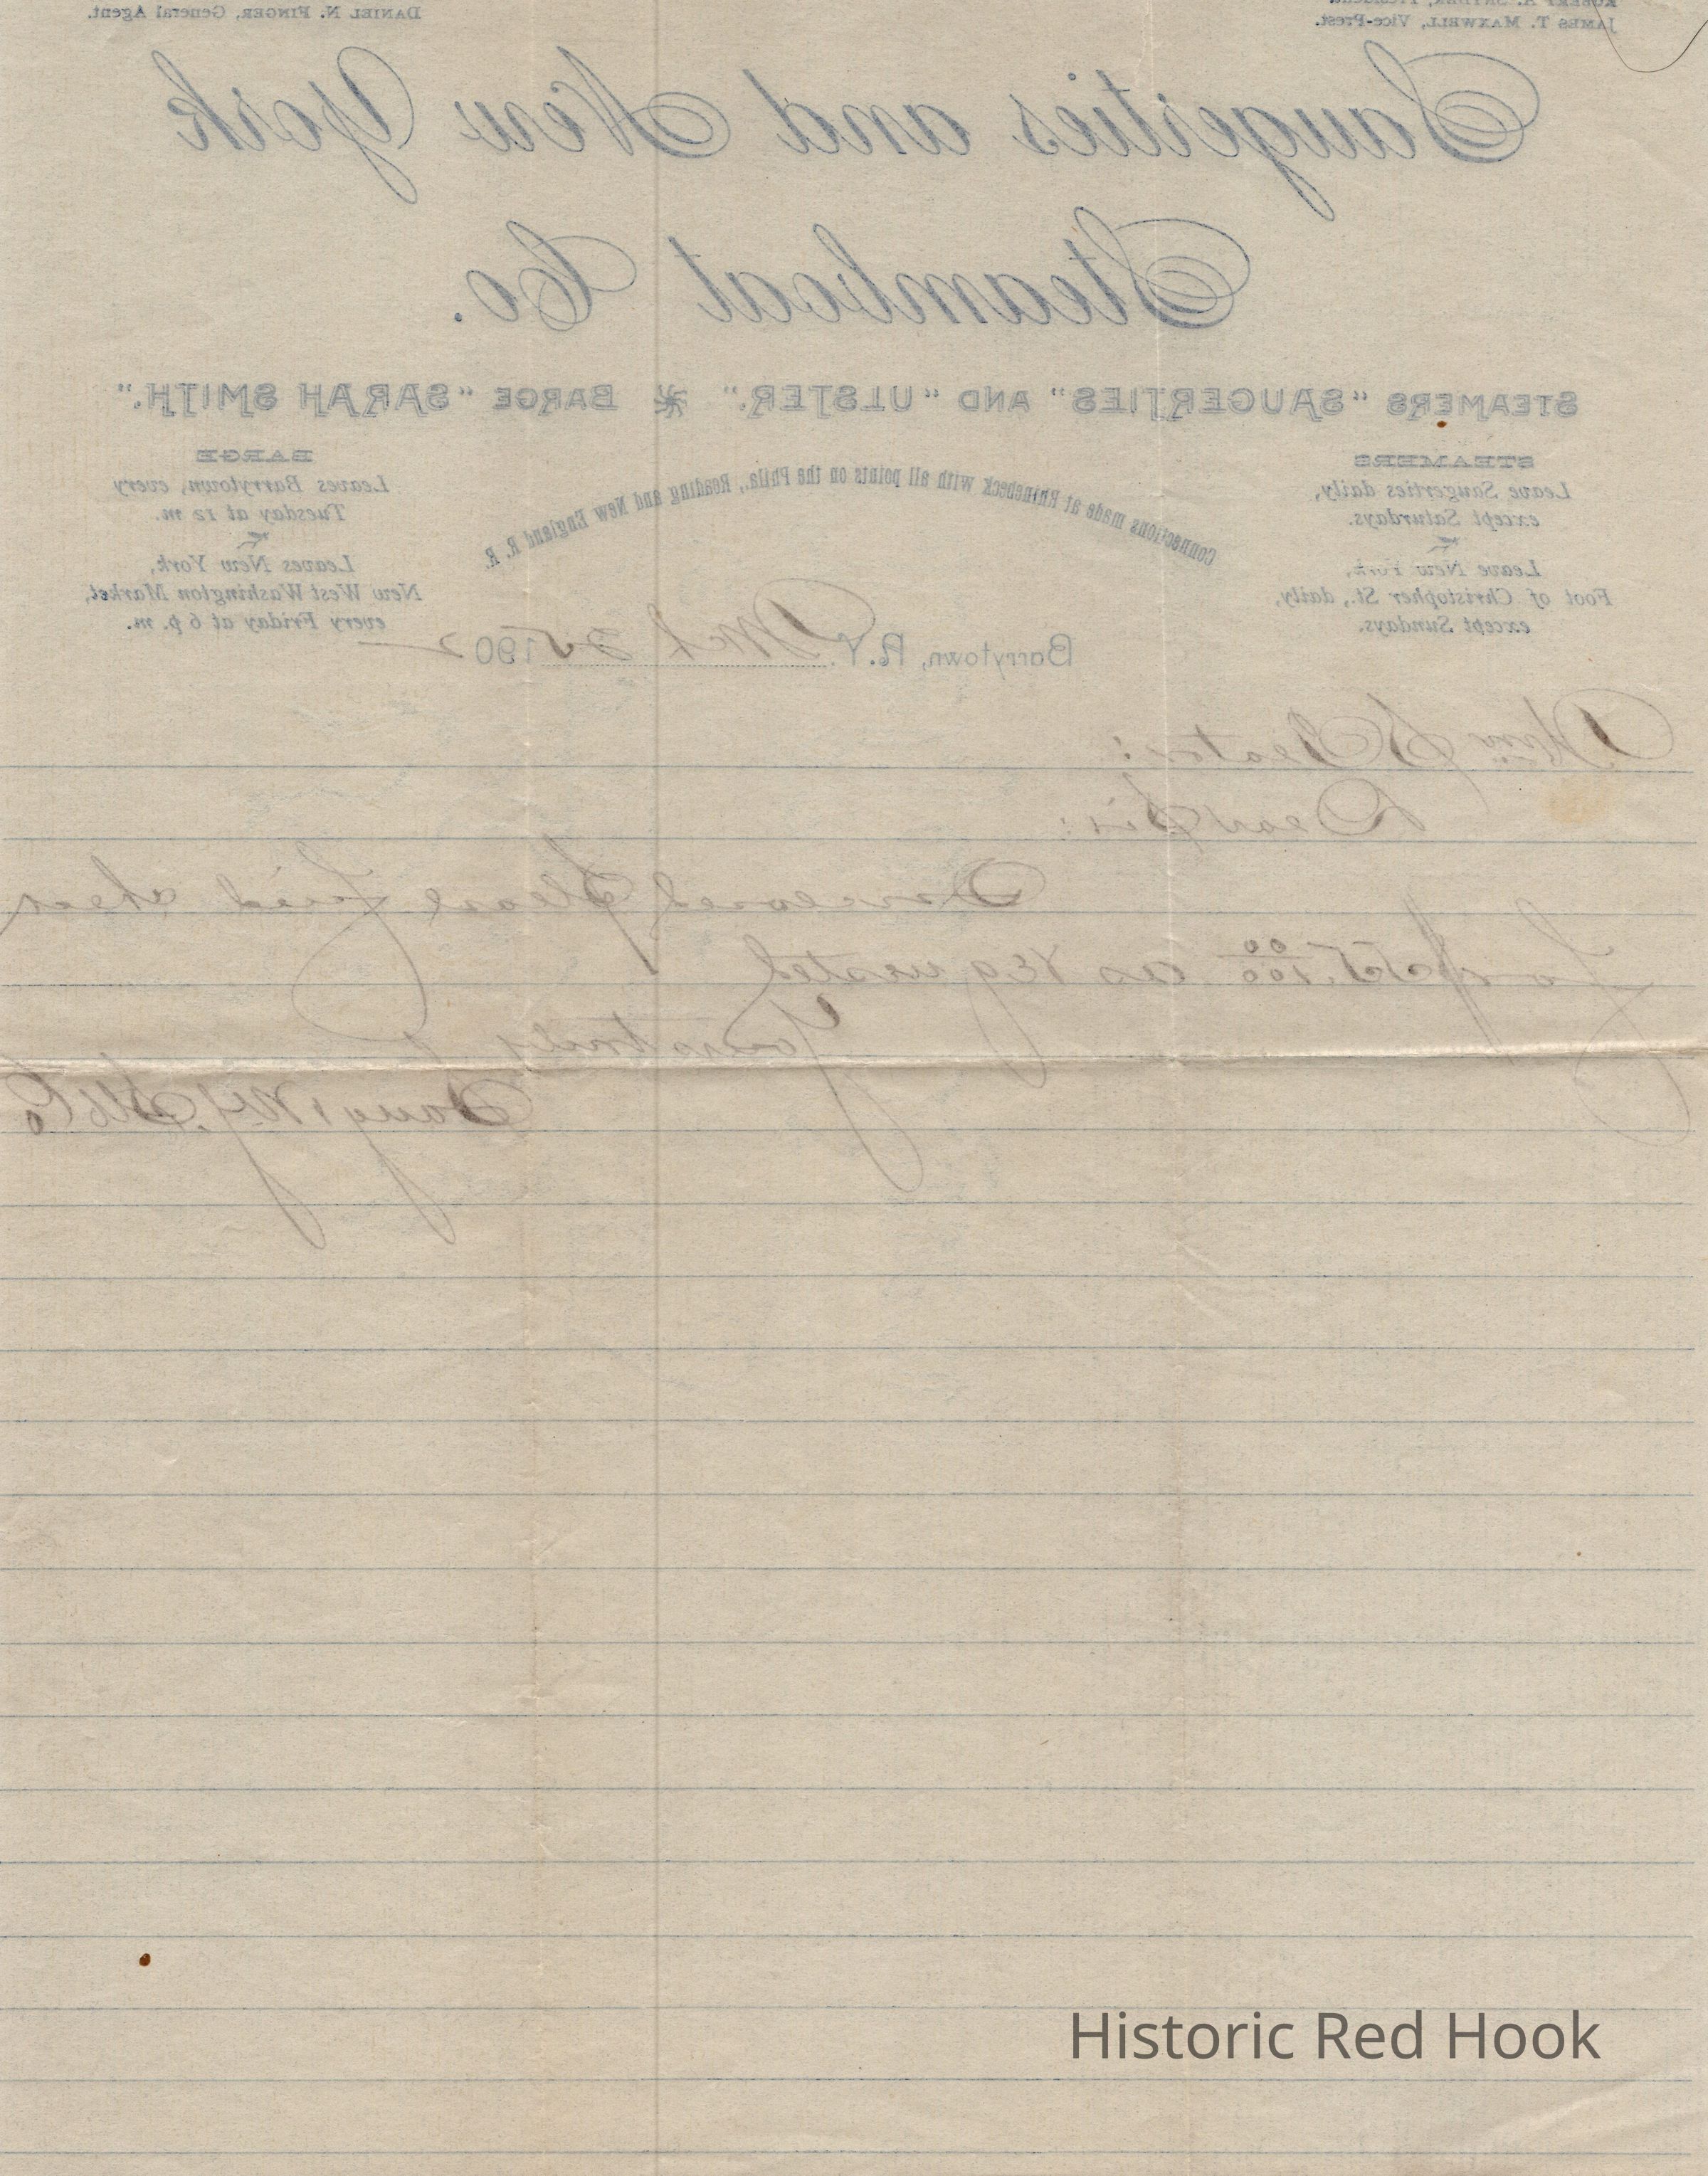 James T. Maxwell, Vice-Prest.
Daniel N. Finger, General Agent.
Saugerties and New York
Steamboat Co.
STEAMERS "SAUGERTIES" AND "ULSTER." BARGE "SARAH SMITH."
STEAMERS
Leave Saugerties daily,
except Saturdays.
Leave New York,
Foot of Christopher St., daily,
except Sundays.
Connections made at Rhinebeck with all points on the Phila., Reading and New England R. R.
BARGE
Leaves Barrytown, every
Tuesday at 12 m.
Leaves New York,
New West Washington Market,
every Friday at 6 p. m.
Barrytown, N. Y. Mch 25 1902
Wm S
Dear Sir:
Please find check
for as requested
Yours truly
Saug & N.Y. St Co
Historic Red Hook